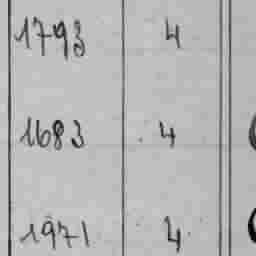 1793 4
1683 4
1971 4